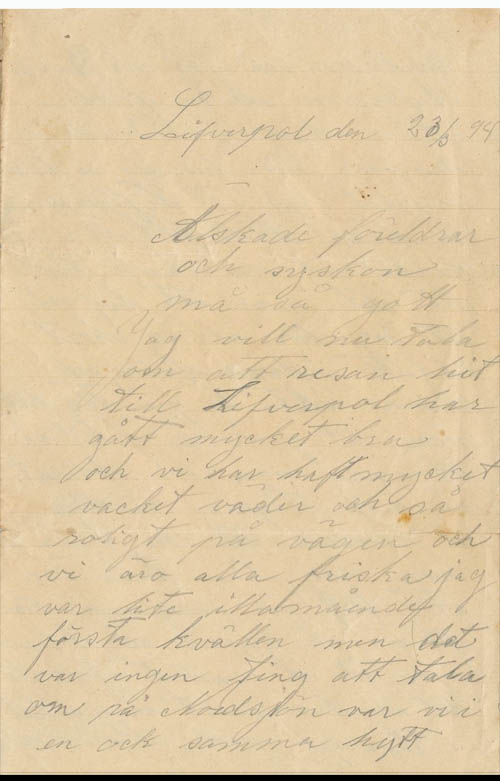 Lifverpol den 23/3 94
Älskade föreldrar
och syskon
må så gott
Jag vill nu tala
om att resan hit
till Lifverpol har
gått mycket bra
och vi har haft mycket
vacket väder och så
roligt på vägen och
vi äro alla friska jag
var lite illamående
första kvällen men det
var ingen ting att tala
om på Nordsjön var vi i
en ock samma hytt